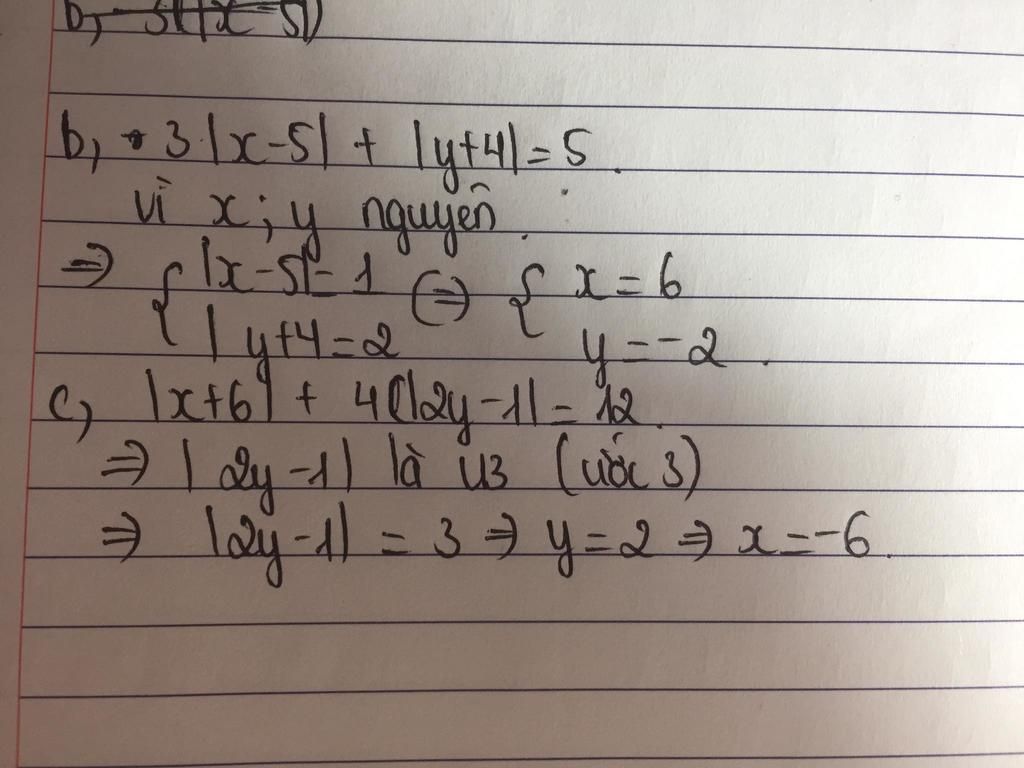 b, 3(|x-5|)
b, 3.|x-5| + |y+4| = 5.
vì x; y nguyên.
=> { |x-5| = 1 (=> { x = 6
| y+4 = 2 y = -2.
c, |x+6| + 4(|2y-1| = 12.
=> | 2y-1| là U3 (ước 3)
=> |2y-1| = 3 => y = 2 => x = -6.